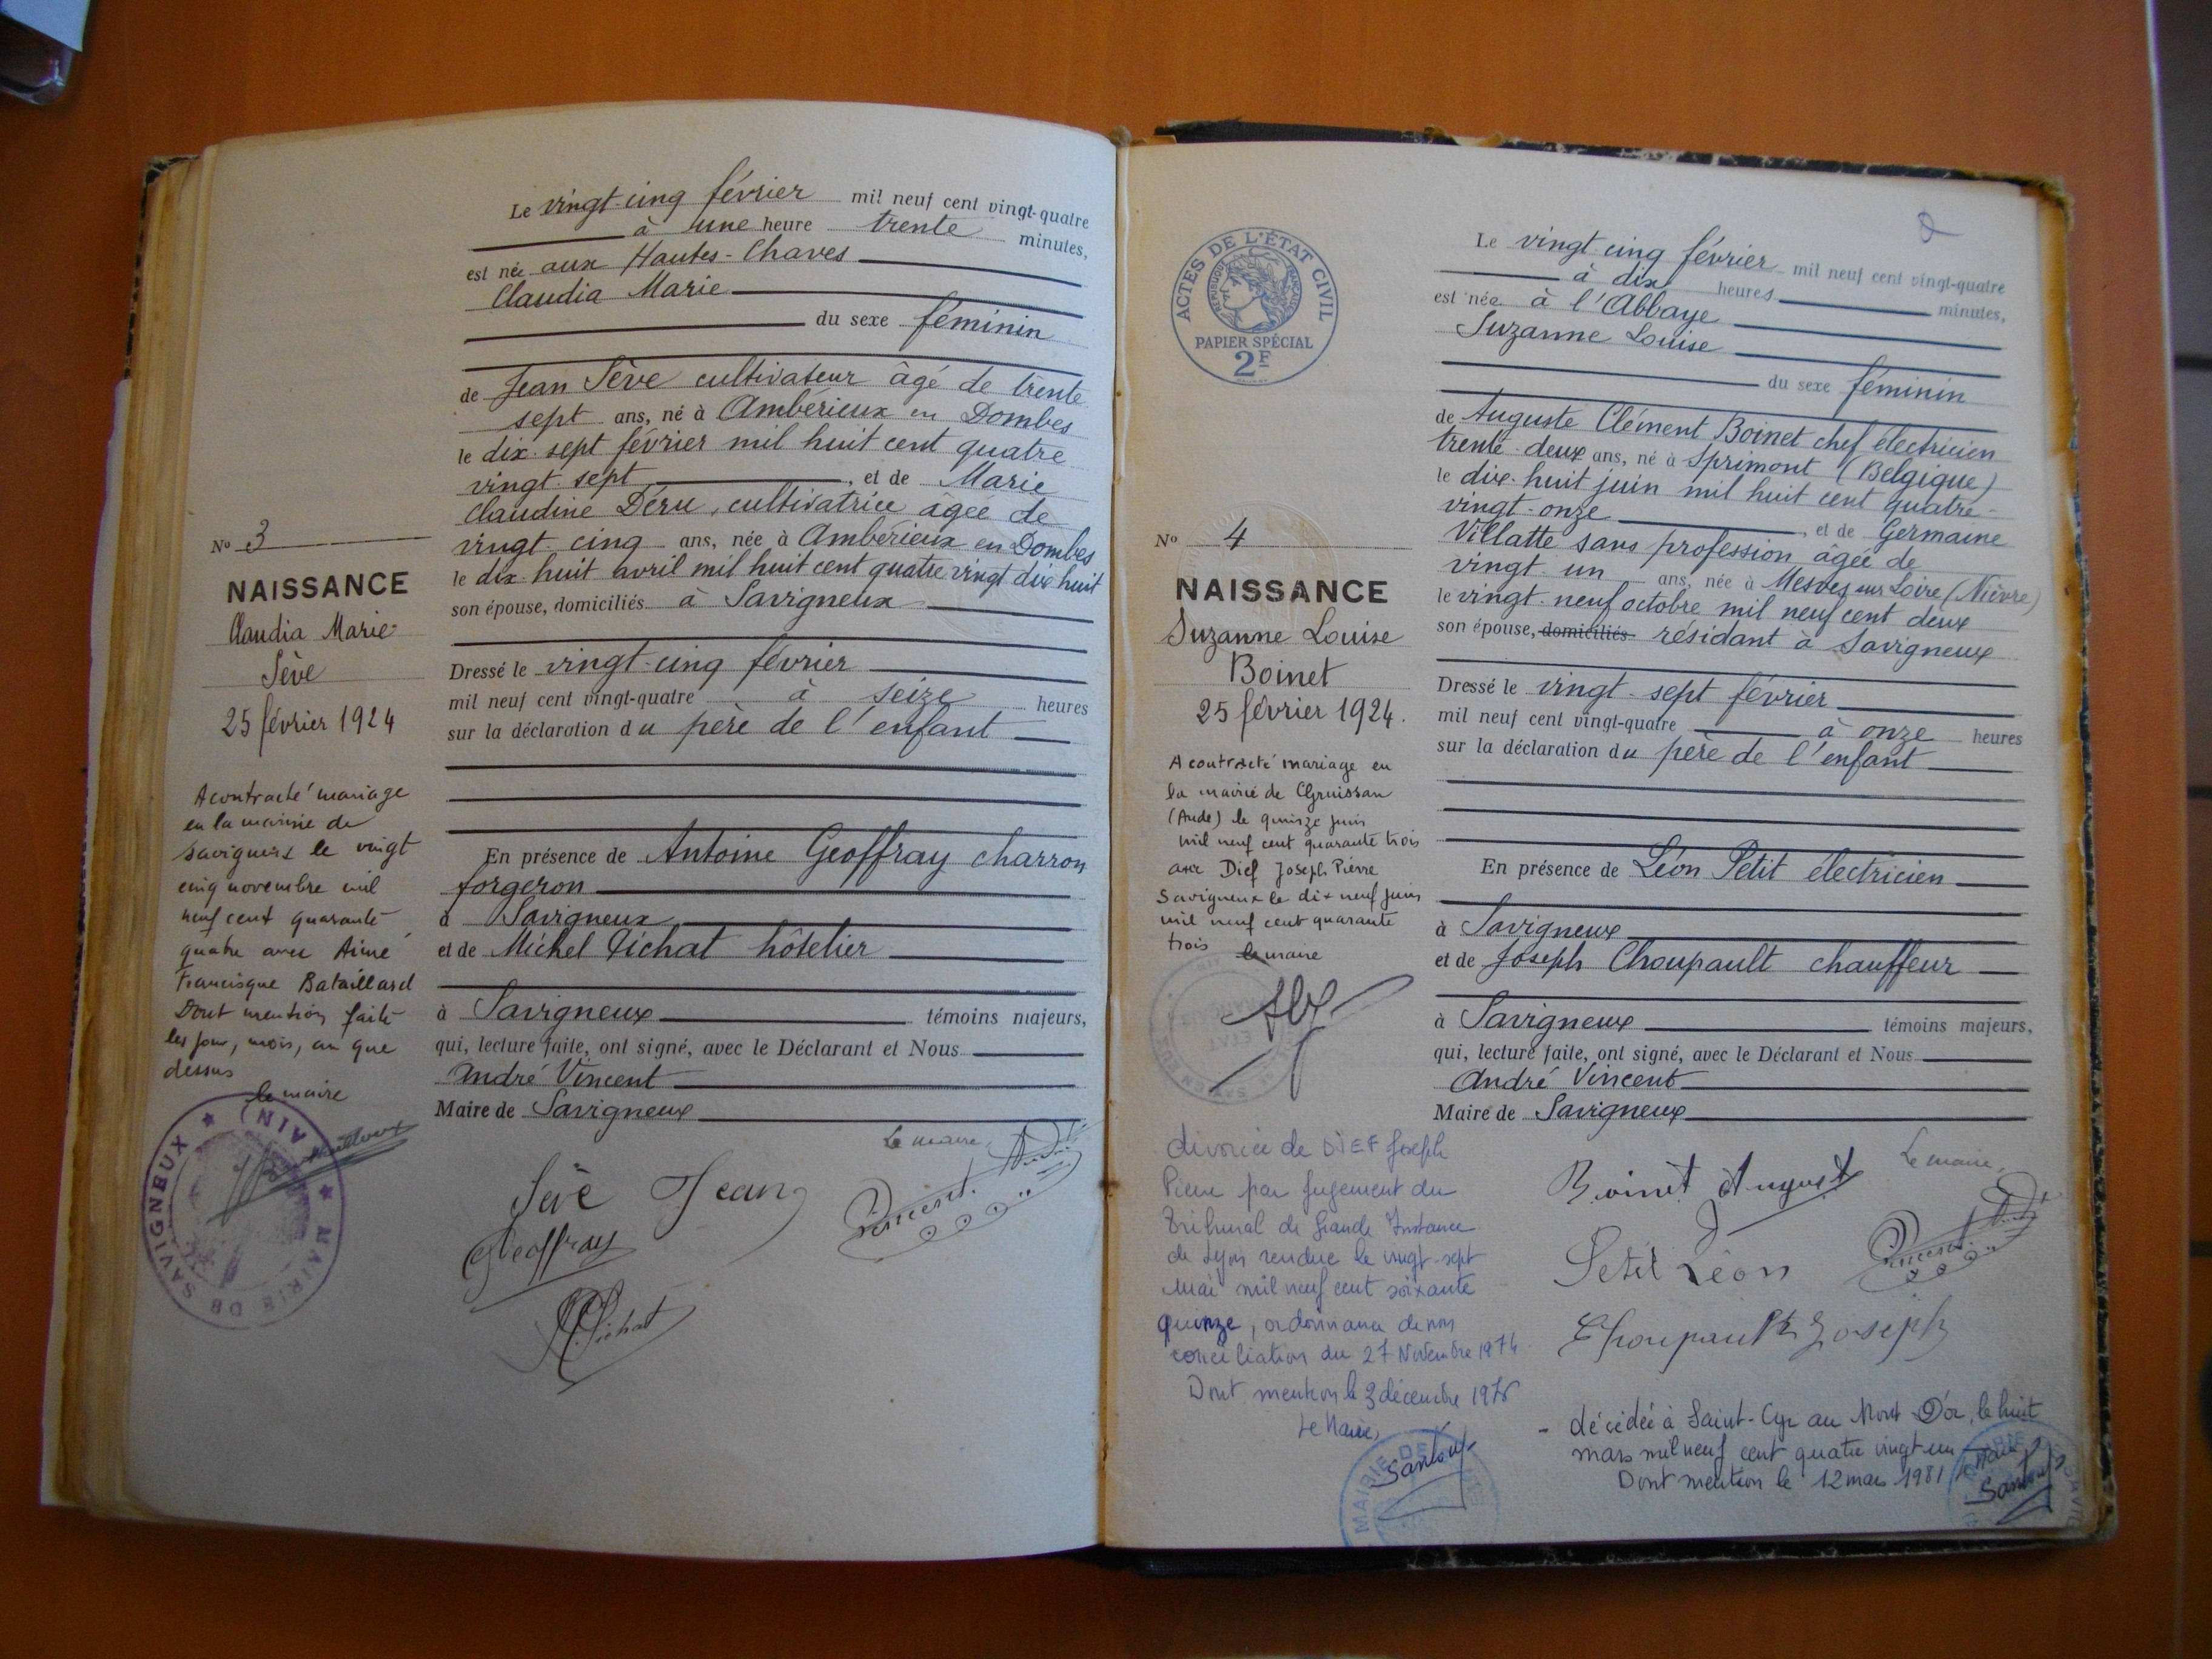 Le vingt-cinq février mil neuf cent vingt-quatre
à une heure trente minutes,
est née aux Hautes-Chaves
Claudia Marie
du sexe féminin
de Jean Sève cultivateur âgé de trente
sept ans, né à Ambérieux en Dombes
le dix-sept février mil huit cent quatre
vingt-sept, et de Marie
Claudine Déru, cultivatrice âgée de
vingt cinq ans, née à Ambérieux en Dombes
le dix-huit avril mil huit cent quatre vingt dix huit
son épouse, domiciliés à Savigneux
Dressé le vingt-cinq février
mil neuf cent vingt-quatre à seize heures
sur la déclaration du père de l'enfant
En présence de Antoine Geoffray charron
forgeron
à Savigneux
et de Michel Pichat hôtelier
à Savigneux témoins majeurs,
qui, lecture faite, ont signé, avec le Déclarant et Nous
André Vincent
Maire de Savigneux
Le maire,
Sève Jean
Vincent
Geoffray
Pichat
No 3
NAISSANCE
Claudia Marie
Sève
25 février 1924
A contracté mariage
en la mairie de
Savigneux le vingt
cinq novembre mil
neuf cent quarante
quatre avec Aimé
Francisque Bataillard
Dont mention faite
les jour, mois, an que
dessus
le maire
MAIRIE DE SAVIGNEUX (AIN)
ACTES DE L'ÉTAT CIVIL
RÉPUBLIQUE FRANÇAISE
PAPIER SPÉCIAL
2F
No 4
NAISSANCE
Suzanne Louise
Boinet
25 février 1924.
A contracté mariage en
la mairie de Gruissan
(Aude) le quinze juin
mil neuf cent quarante trois
avec Dief Joseph Pierre
Savigneux le dix neuf juin
mil neuf cent quarante
trois le maire
divorcée de DIEF Joseph
Pierre par jugement du
Tribunal de Grande Instance
de Lyon rendue le vingt-sept
mai mil neuf cent soixante
quinze, ordonnance de non
conciliation du 27 Novembre 1974
Dont mention le 3 décembre
Le Maire,
MAIRIE DE
Le vingt-cinq février mil neuf cent vingt-quatre
à dix heures minutes,
est née à l'Abbaye
Suzanne Louise
du sexe féminin
de Auguste Clément Boinet chef électricien
trente-deux ans, né à Sprimont (Belgique)
le dix-huit juin mil huit cent quatre-
vingt-onze, et de Germaine
Villatte sans profession âgée de
vingt un ans, née à Mesves sur Loire (Nièvre)
le vingt-neuf octobre mil neuf cent deux
son épouse, domiciliés résidant à Savigneux
Dressé le vingt-sept février
mil neuf cent vingt-quatre à onze heures
sur la déclaration du père de l'enfant
En présence de Léon Petit électricien
à Savigneux
et de Joseph Choupault chauffeur
à Savigneux témoins majeurs,
qui, lecture faite, ont signé, avec le Déclarant et Nous
André Vincent
Maire de Savigneux
Le maire,
Boinet August
Vincent
Petit Léon
Choupault Joseph
- décédée à Saint-Cyr au Mont D'Or, le huit
mars mil neuf cent quatre vingt-un
Dont mention le 12 mars 1981